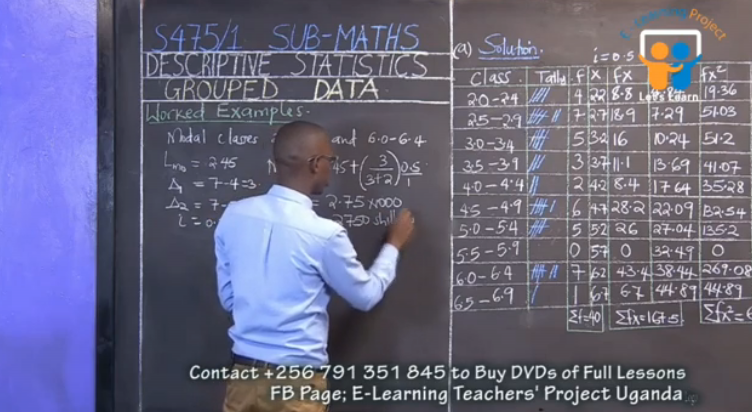 S475/1 SUB-MATHS
DESCRIPTIVE STATISTICS
GROUPED DATA
Worked Examples.
Modal classes and 6.0-6.4
Lmo = 2.45 45+(3/(3+2))0.5/1
Δ1 = 7-4=3. = 2.75 x1000
Δ2 = 7- 2750 shill
(a) Solution. i = 0.5
Class Tally f x fx fx²
2.0-2.4 4 2.2 8.8 4.84 19.36
2.5-2.9 7 2.7 18.9 7.29 51.03
3.0-3.4 5 3.2 16 10.24 51.2
3.5-3.9 3 3.7 11.1 13.69 41.07
4.0-4.4 2 4.2 8.4 17.64 35.28
4.5-4.9 6 4.7 28.2 22.09 132.54
5.0-5.4 5 5.2 26 27.04 135.2
5.5-5.9 0 5.7 0 32.49 0
6.0-6.4 7 6.2 43.4 38.44 269.08
6.5-6.9 1 6.7 6.7 44.89 44.89
Σf=40 Σfx=167.5 Σfx²=
E-Learning Project
Let's Learn
Contact +256 791 351 845 to Buy DVDs of Full Lessons
FB Page; E-Learning Teachers' Project Uganda